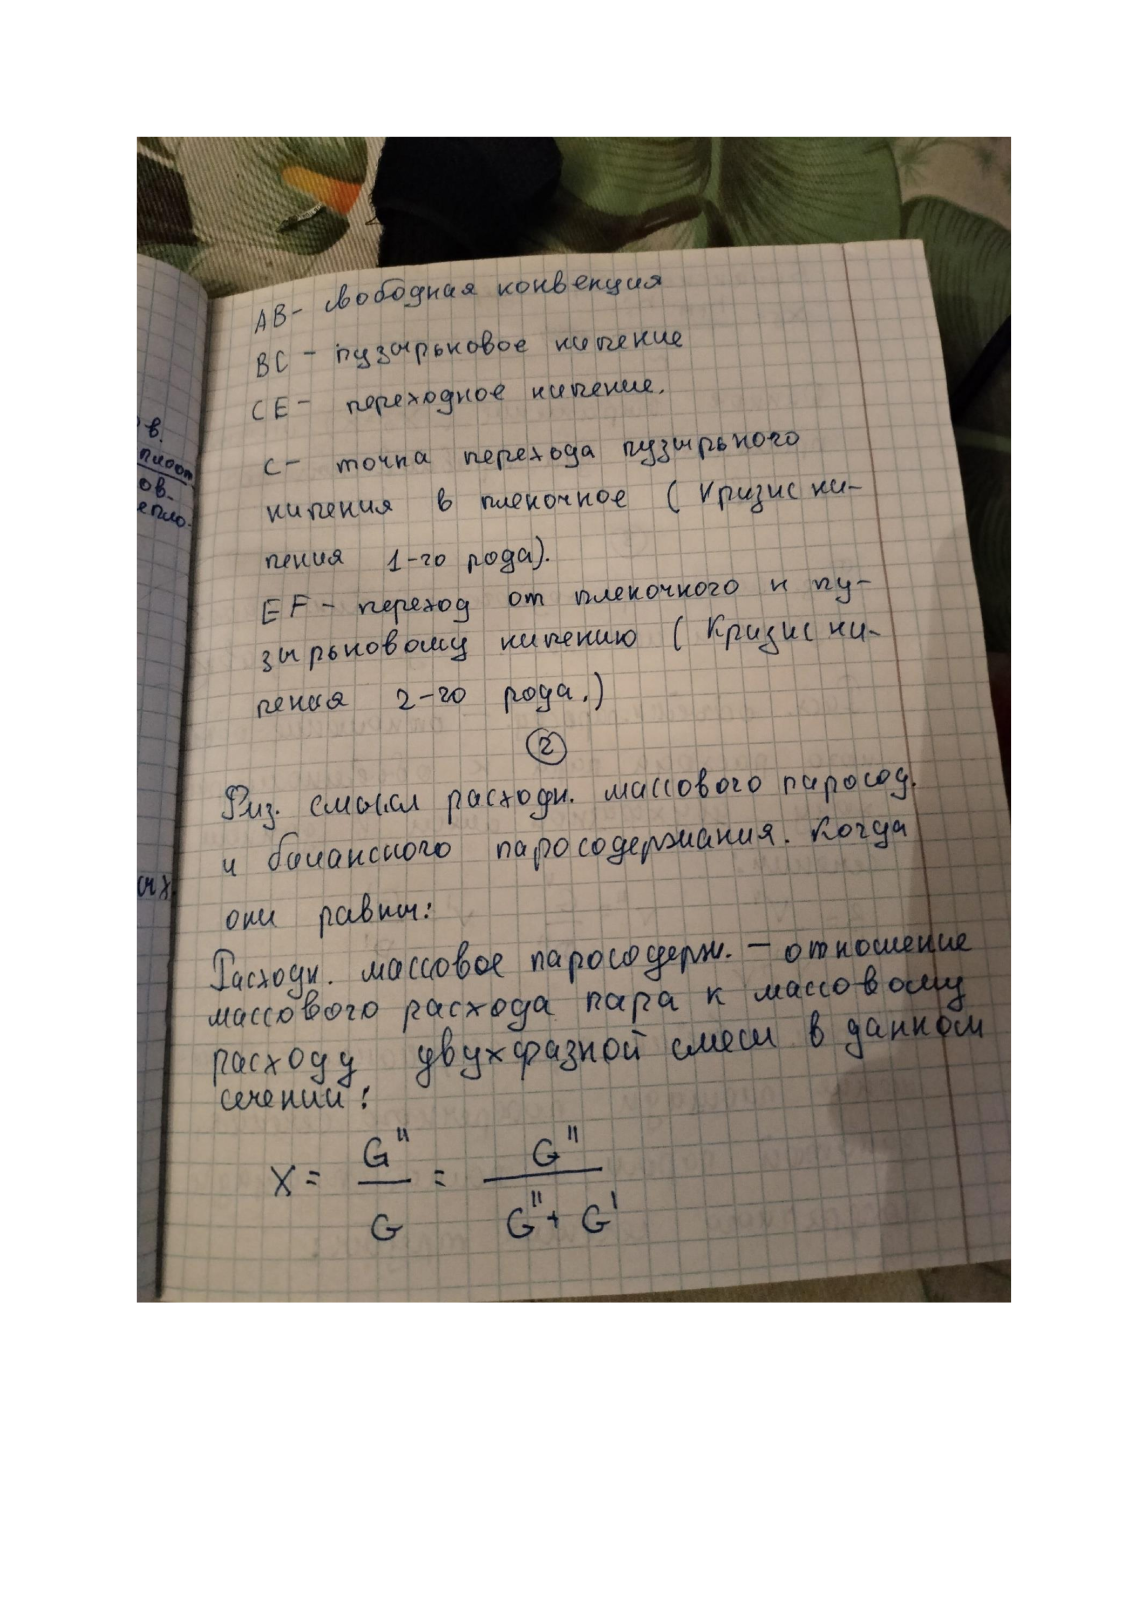 АВ- свободная конвекция
ВС - пузырьковое кипение
СЕ- переходное кипение.
С- точка перехода пузырького
кипения в пленочное (кризис ки-
пения 1-го рода).
EF- переход от пленочного к пу-
зырьковому кипению (Кризис ки-
пения 2-го рода.)
2
Физ. смысл расходн. массового паросод.
и балансного паросодержания. Когда
они равны:
Расходн. массовое паросодерж. - отношение
массового расхода пара к массовому
расходу двухфазной смеси в данном
сечении:
X = G" / G = G" / (G" + G')
в.
ов.